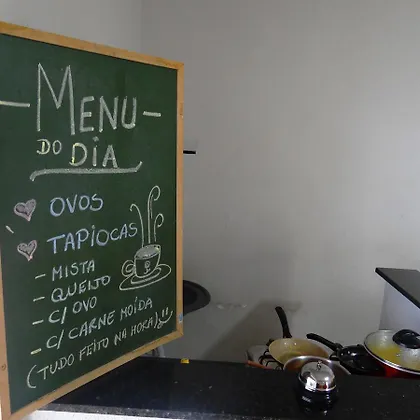 - MENU -
DO DIA
OVOS
TAPIOCAS
- MISTA
- QUEIJO
- C/ OVO
- C/ CARNE MOÍDA
(TUDO FEITO NA HORA)